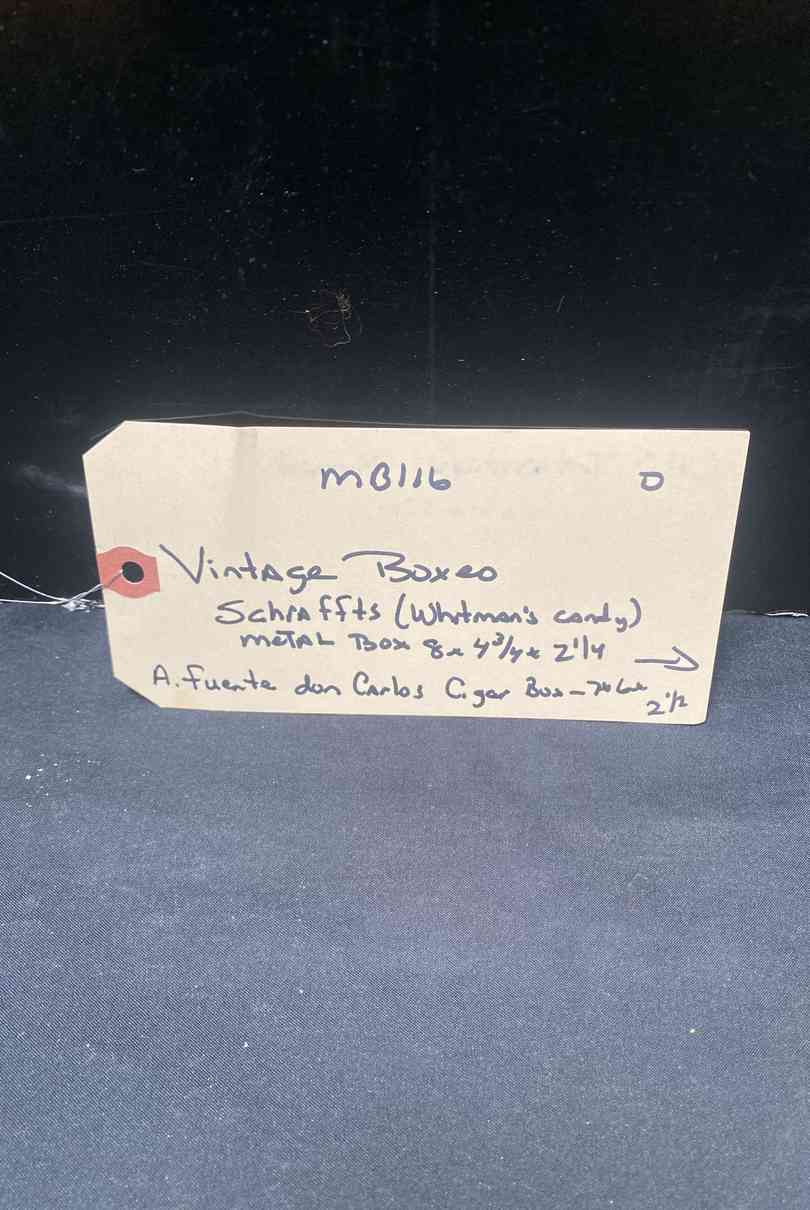 MB116 D
Vintage Boxes
Schraffts (Whitman's candy)
METAL Box 8x 4 3/4 x 2 1/4 →
A. Fuente don Carlos Cigar Box - 7x6x
2 1/2